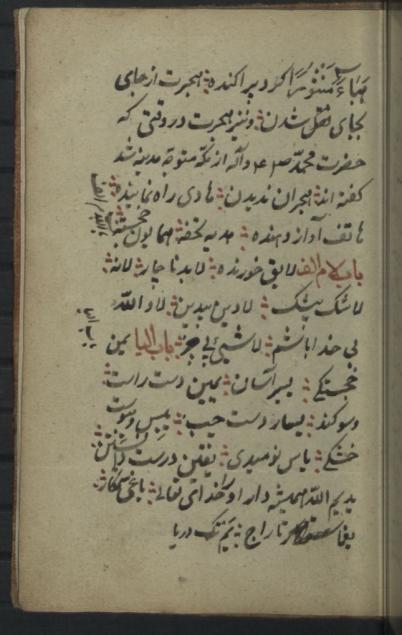 هَبَاءً مَنْثُورًا گرد پراکنده هجرت از جای
بجای نقل شدن ونیز هجرت در وقتی که
حضرت محمد وآله از مکه متوجه مدینه شد
گفته اند هجران ندیدن هادی راه نماینده
هاتف آواز دهنده هدیه تحفه همایون خجسته
باب لام الف لایق خورنده لابد ناچار لانه
لاشک بیشک لادین بیدین لا والله
نی خدا باشم لاشیئ بی چیز باب الیا یمن
خجستگی یسر آسان یمین دست راست
وسوگند یسار دست چپ یبس وبیوست
خشکی یاس نومیدی یقین درست دانستن
یدیم الله همیشه دار او را خدای تعالی یاغی ستمکار
یغما تاراج یم تک دریا